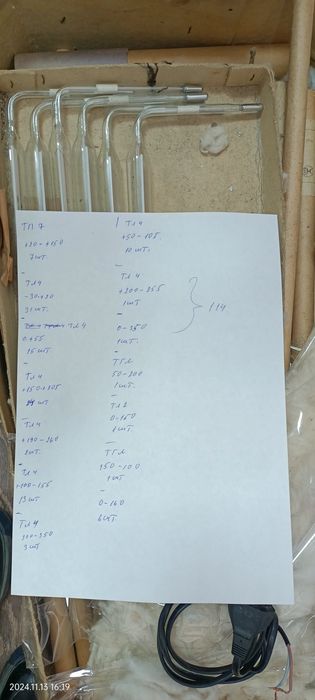 ТП 7
+20-+150
7шт.
-
ТЛ4
-30+20
31шт.
-
ТЛ4
0+55
15шт.
-
ТЛ4
+150+205
шт
-
ТЛ4
+190-260
шт.
-
ТЛ4
+100-155
13шт
-
ТЛ4
300-350
3шт
ТЛ4
+50-105
10шт.
-
ТЛ4
+200-255
1шт
-
0-350
1шт.
-
ТГЛ
50-200
1шт.
-
ТЛ2
0-150
шт.
-
ТГЛ
-100
1шт
-
0-160
6шт.
} 114
2024.11.13 16:19